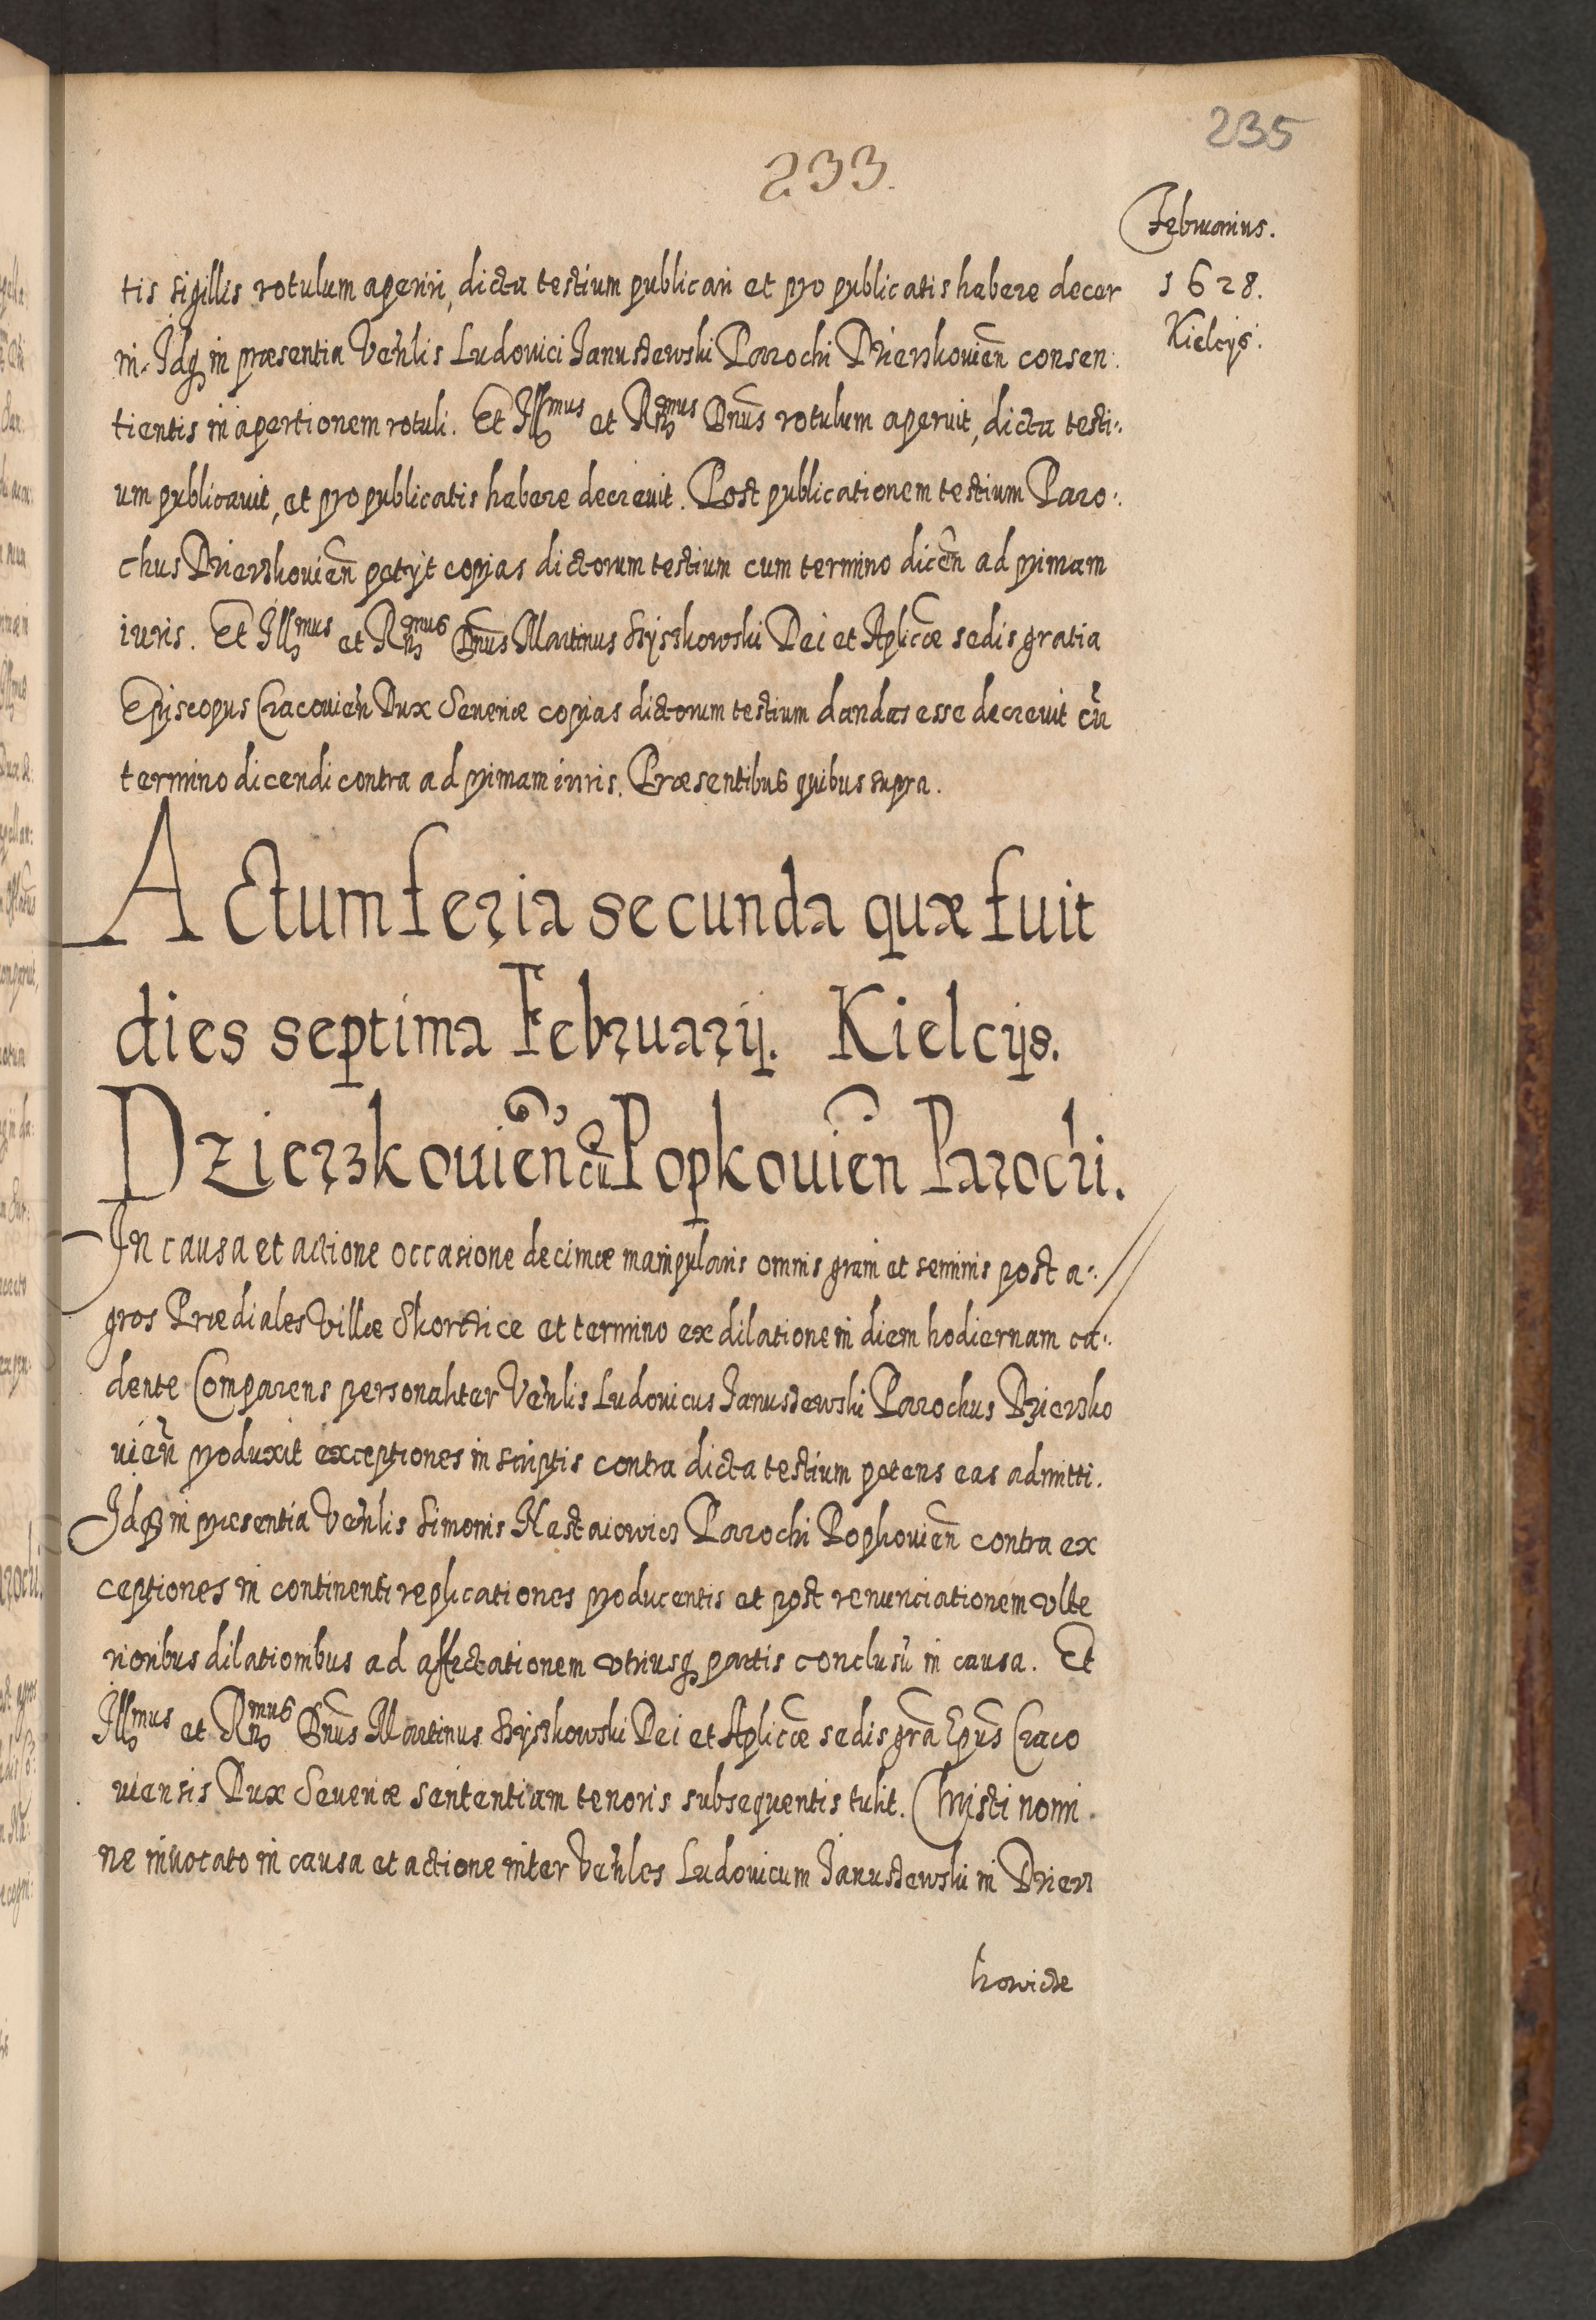 235
233.
Februarius.
1628.
Kielcijs.
tis sigillis rotulum aperiri, dicta testium publicari et pro publicatis habere decer
ni. Idq in præsentia Venlis Ludovici Januszewski Parochi Dzierzkovien̄ consen:
tientis in apertionem rotuli. Et Illmus et Rn̄dmus Dnus rotulum aperuit, dicta testi:
um publicavit, et pro publicatis habere decrevit. Post publicationem testium Paro:
chus Dzierzkovien̄ petijt copias dictorum testium cum termino dicen̄ ad primam
iuris. Et Illmus et Rn̄dmus Dnus Martinus Szyszkowski Dei et Aplicæ sedis gratia
Episcopus Cracovien̄ Dux Severiæ copias dictorum testium dandas esse decrevit cū
termino dicendi contra ad primam iuris. Præsentibus quibus supra.
Actum feria secunda quæ fuit
dies septima Februarij. Kielcijs.
Dzierzkouien̄ cū Popkouien̄ Parochi.
In causa et actione occasione decimæ manipularis omnis grani et seminis post a:
gros Prædiales Villæ Skorczice et termino ex dilatione in diem hodiernam ca:
dente Comparens personaliter Venlis Ludovicus Januszewski Parochus Dzierzko
vien̄ produxit exceptiones in scriptis contra dicta testium petens eas admitti.
Idq in præsentia Venlis Simonis Parochi Popkovien̄ contra ex
ceptiones in continenti replicationes producentis et post renunciationem ulte
rioribus dilationibus ad affectationem utriusq partis conclusū in causa. Et
Illmus et Rn̄dmus Dnus Martinus Szyszkowski Dei et Aplicæ sedis grā Epūs Craco
viensis Dux Severiæ sententiam tenoris subsequentis tulit. Christi nomi
ne invocato in causa et actione inter Venles Ludovicum Januszewski in Dzierz
kowicze